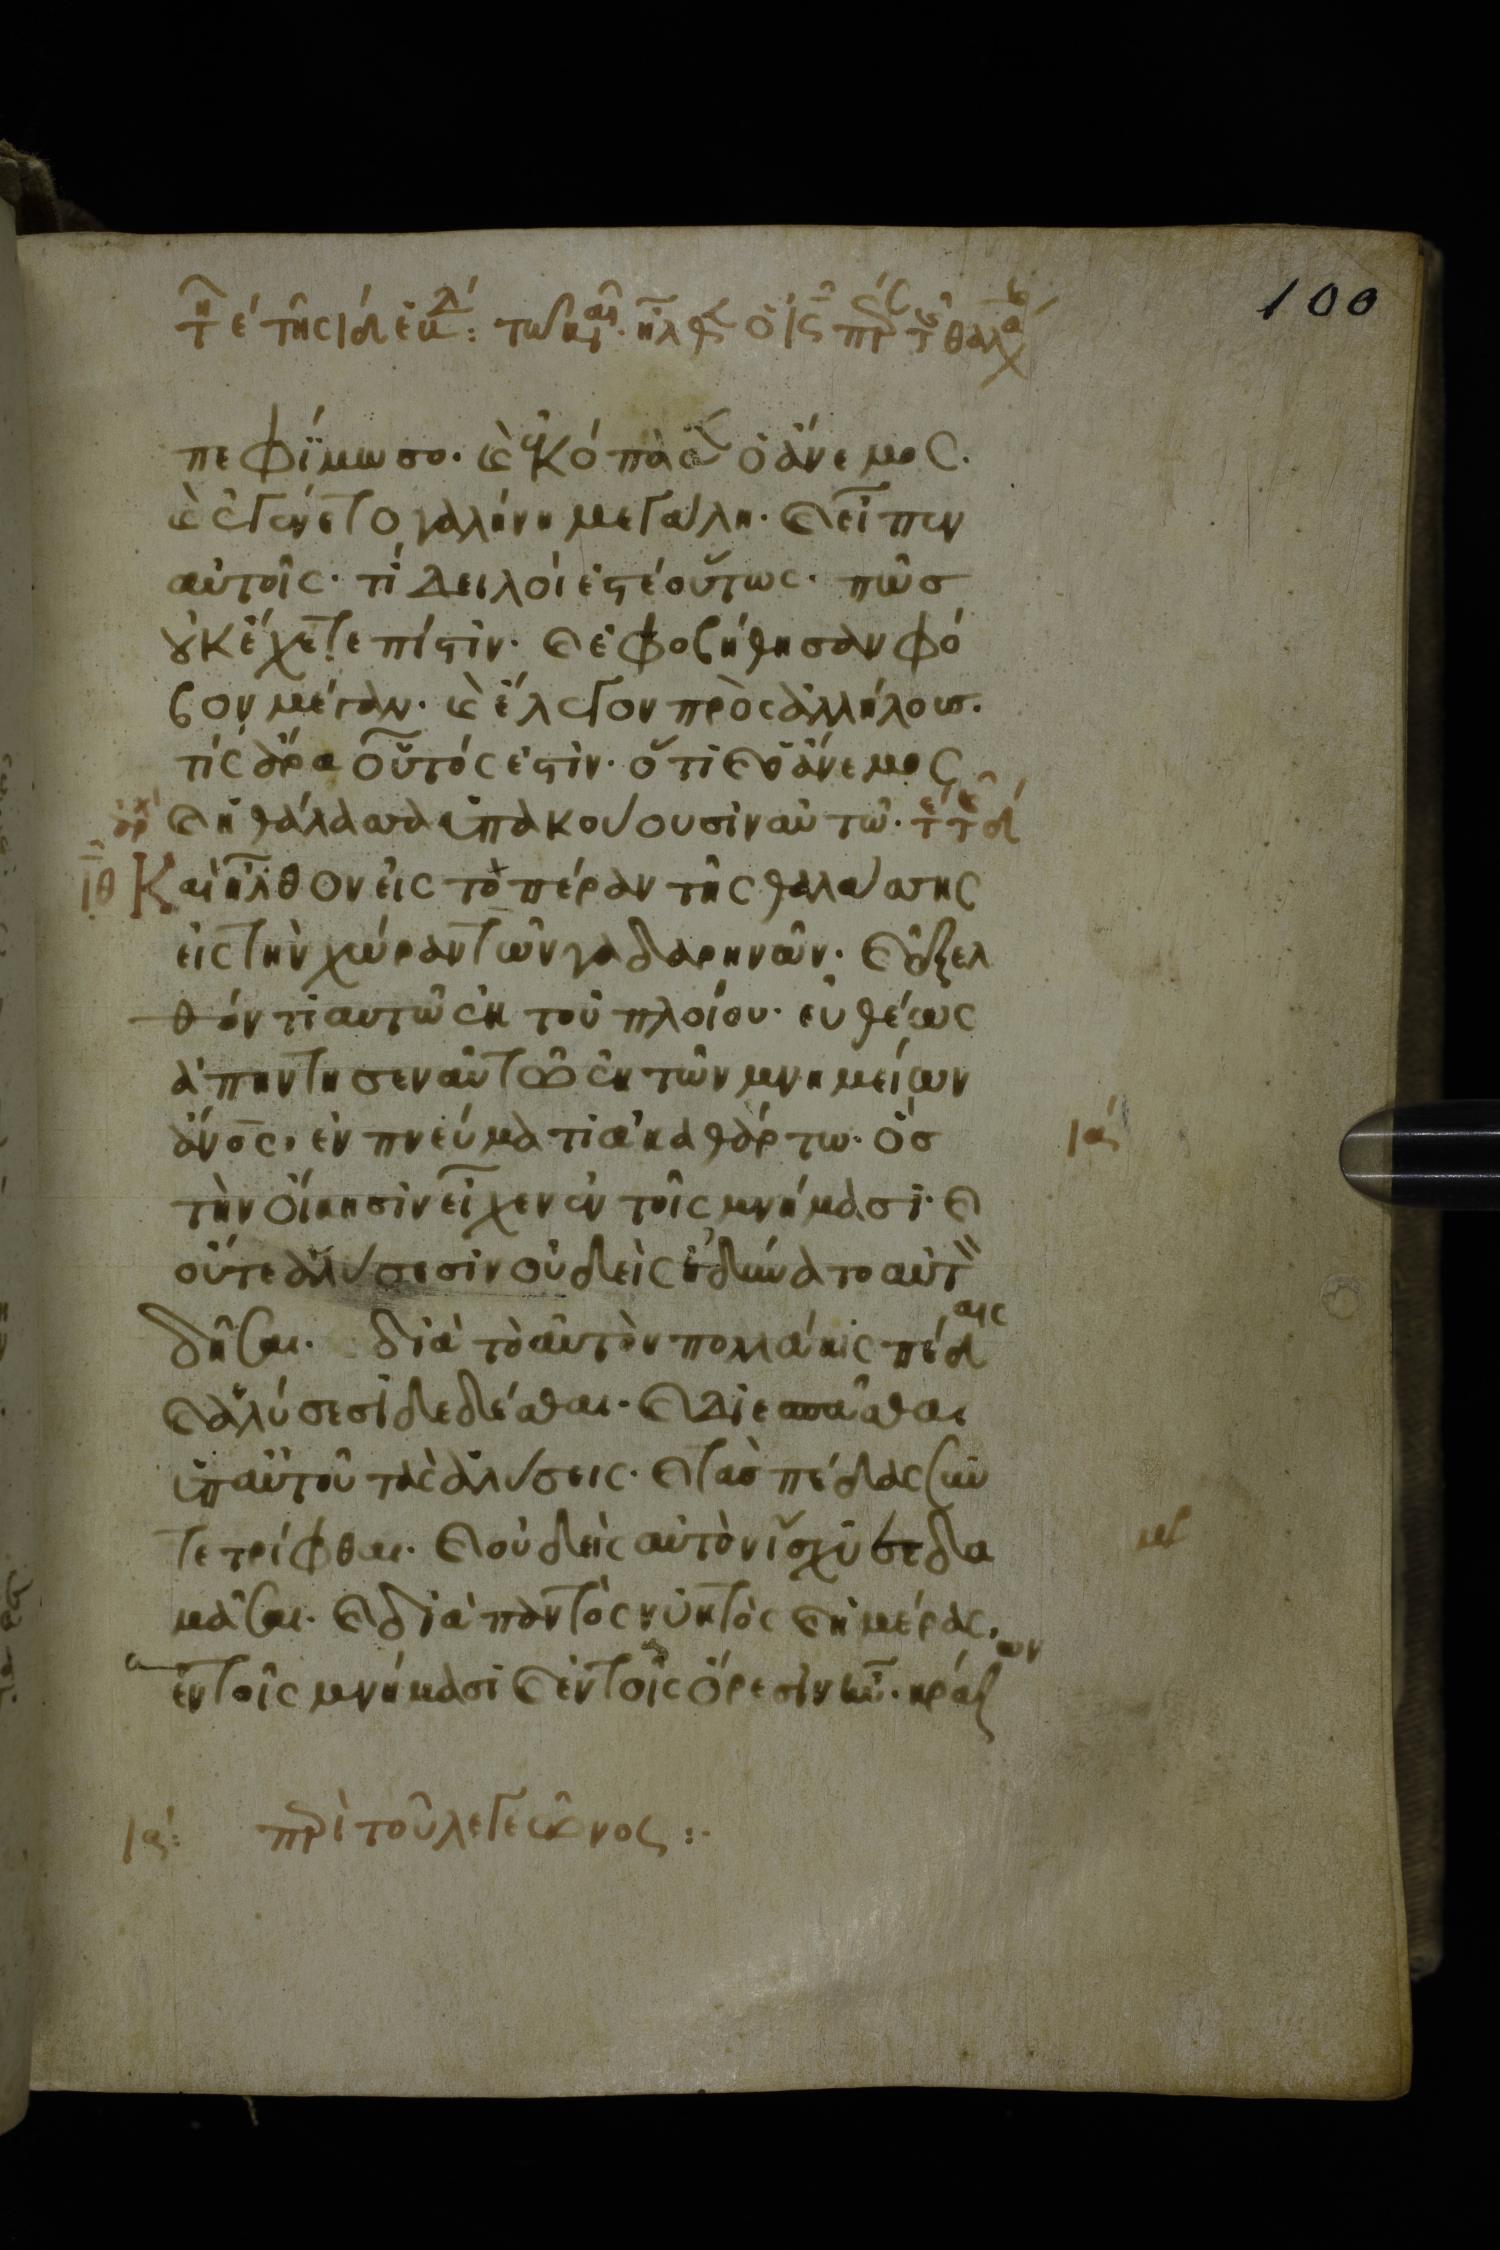 100
πεφίμωσο. καὶ ἐκόπασεν ὁ ἄνεμος.
καὶ ἐγένετο γαλήνη μεγάλη. καὶ εἶπεν
αὐτοῖς. τί δειλοί ἐστέ οὕτως. πῶσ
οὐκ ἔχετε πίστιν. καὶ ἐφοβήθησαν φό
βον μέγαν. καὶ ἔλεγον πρὸς ἀλλήλους.
τίς ἄρα οὗτός ἐστιν. ὅτι καὶ ὁ ἄνεμος
καὶ ἡ θάλασσα ὑπακούουσιν αὐτῶ.
ιθ Καὶ ἦλθον εἰς τὸ πέραν τῆς θαλάσσης
εἰς τὴν χώραν τῶν γαδαρηνῶν. καὶ ἐξελ
θόντι αυτῶ ἐκ τοῦ πλοίου. εὐθέως
ἀπήντησεν αὐτῶ ἐκ τῶν μνημείων
ἄνος, ἐν πνεύματι ἀκαθάρτω. ὅσ
ια
τὴν οἴκησιν εἶχεν ἐν τοῖς μνήμασι. καὶ
οὔτε ἁλύσεσιν οὐδεὶς ἠδύνατο αὐτὸν
δῆσαι. διὰ τὸ αὐτὸν πολλάκις πέδαις
καὶ ἁλύσεσι δεδέσθαι. καὶ διεσπᾶσθαι
ὑπ αὐτοῦ τὰς ἁλύσεις. καὶ τὰσ πέδας συν
τετρίφθαι. καὶ οὐδεὶς αὐτὸν ἴσχυσε δα
μάσαι. καὶ διὰ παντὸς νυκτὸς καὶ ἡμέρας,
ἐν τοῖς μνήμασι καὶ ἐν τοῖς ὄρεσιν ἦν. κράζων
ια: περὶ τοῦ λεγεῶνος :.